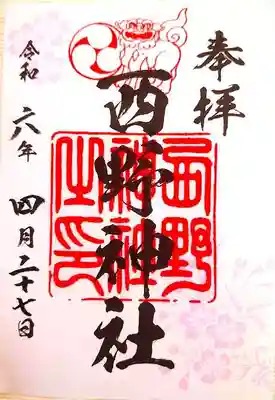 奉拝
西野神社
西野
神社
之印
令和六年四月二十七日